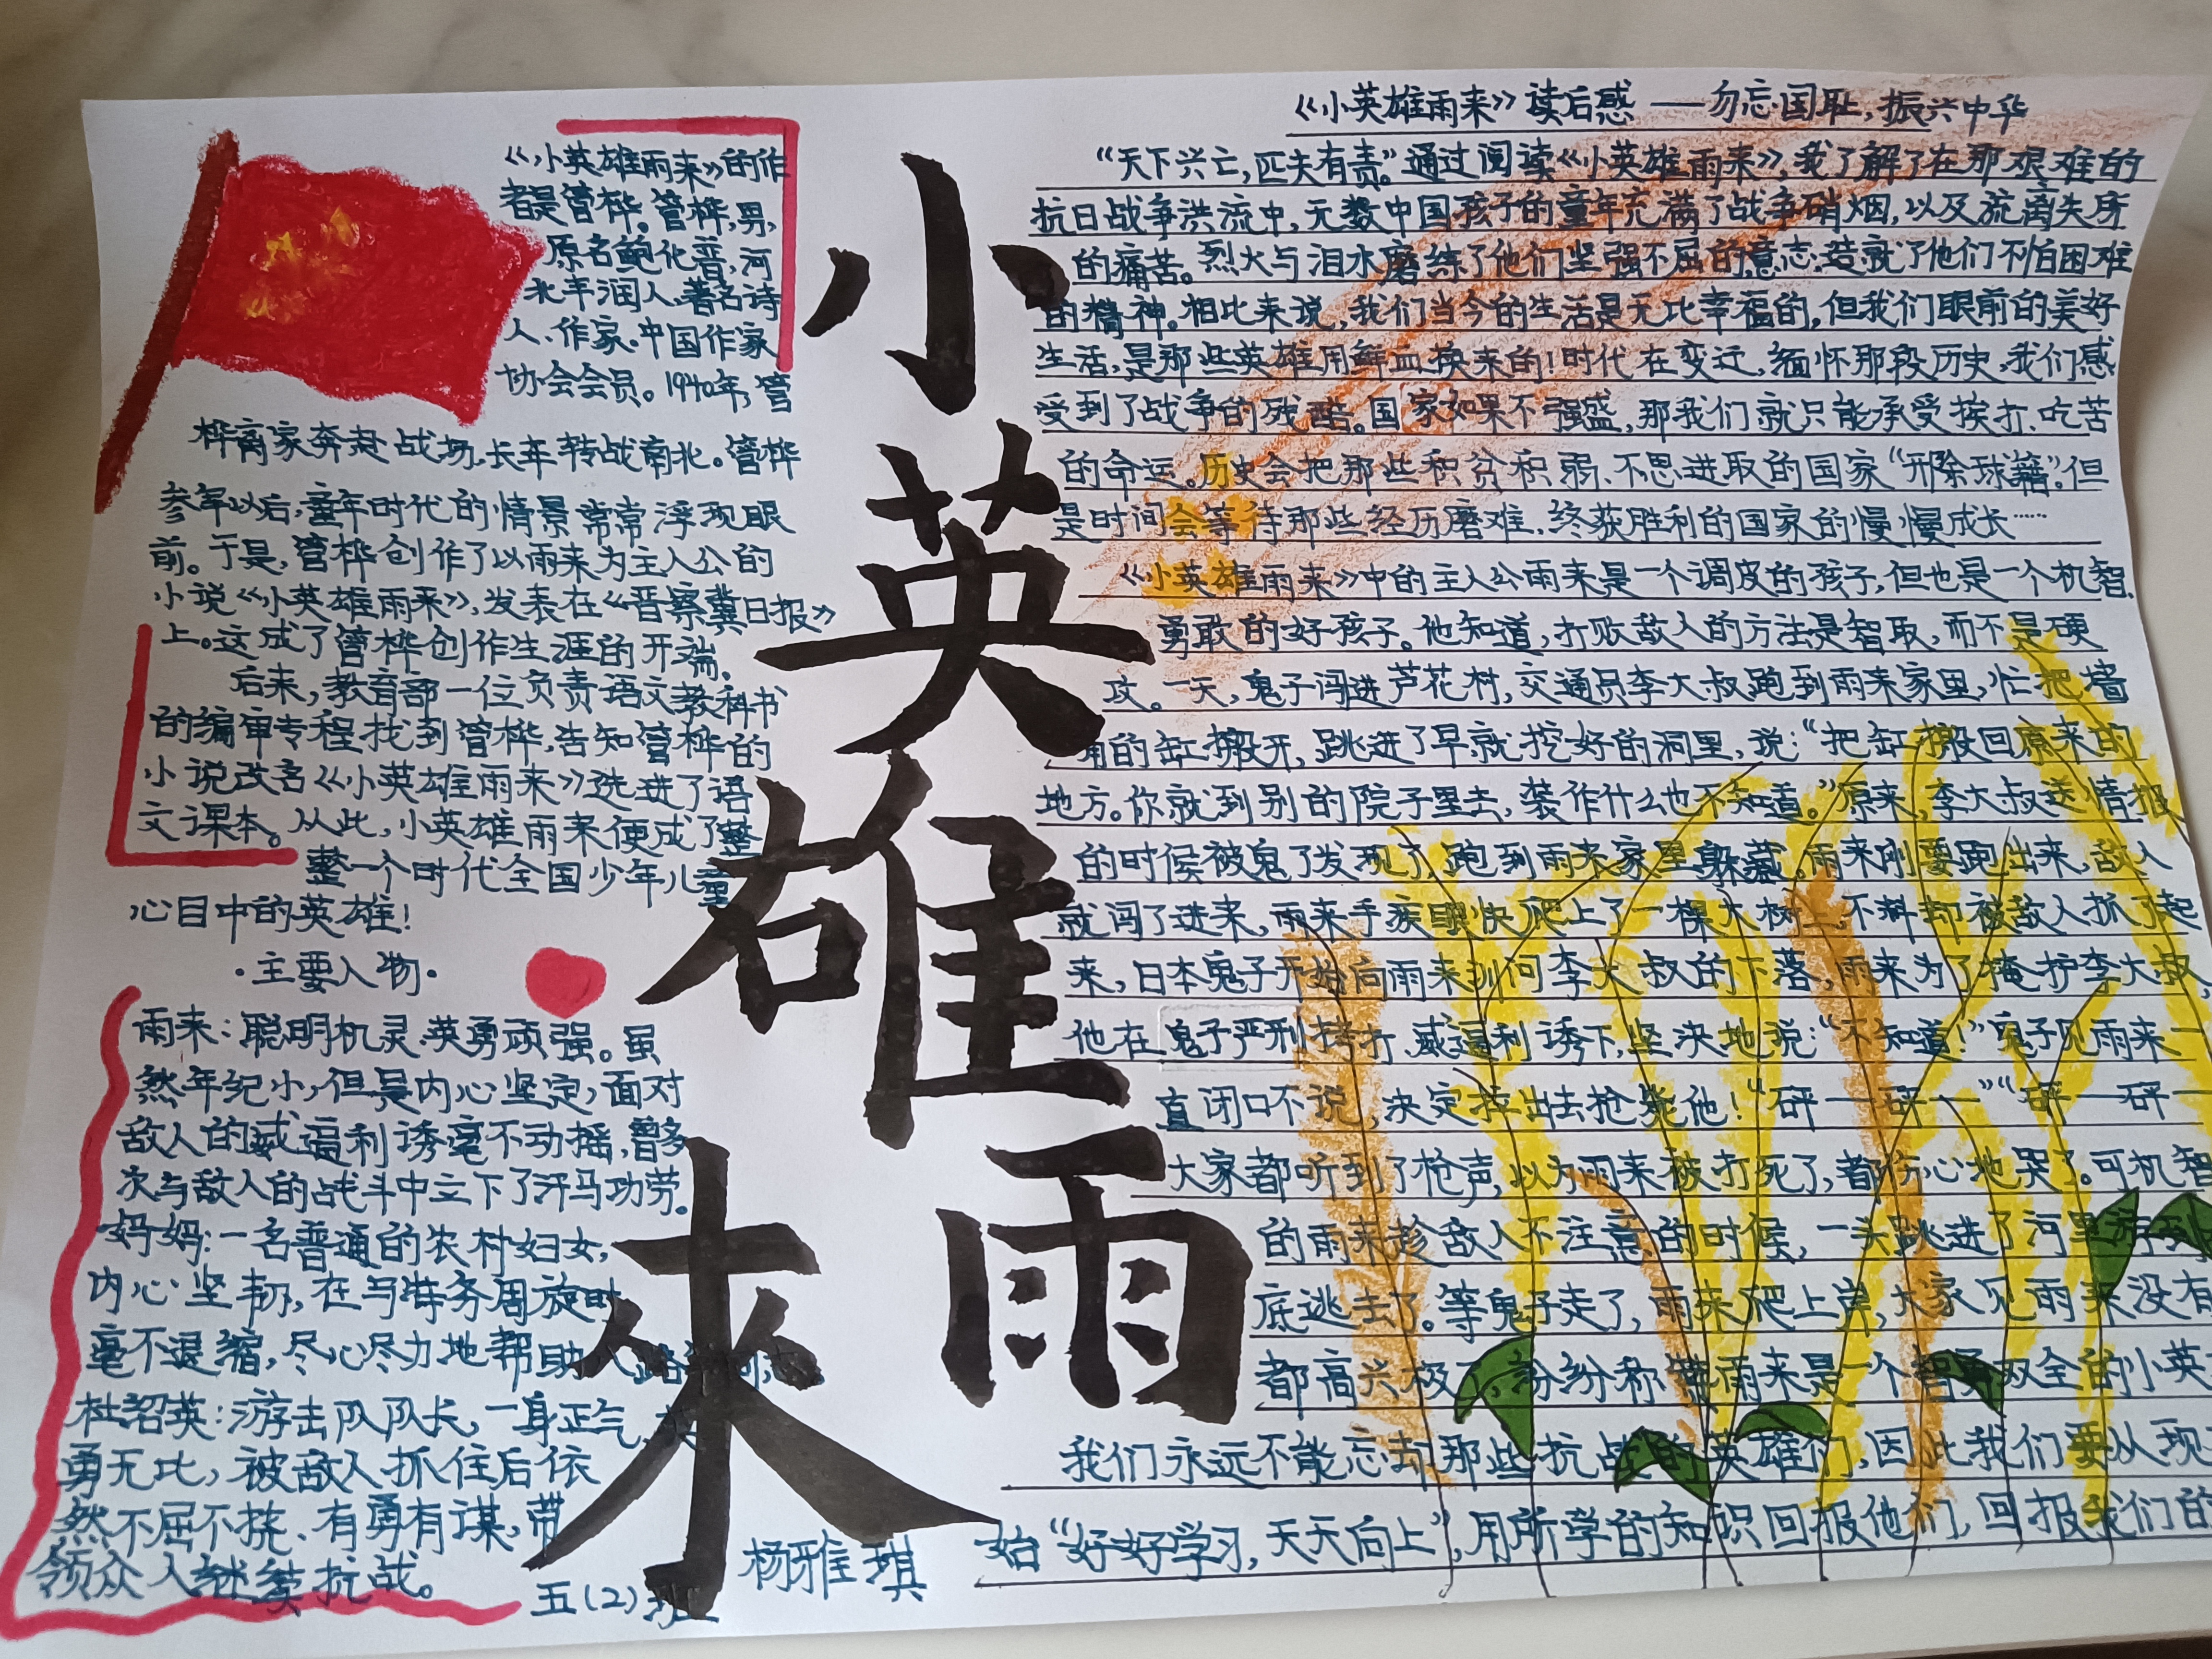 《小英雄雨来》的作
者是管桦。管桦,男,
原名鲍化普,河
北丰润人、著名诗
人、作家。中国作家
协会会员。1940年,管
桦离家奔赴战场,长年转战南北。管桦
参军以后,童年时代的情景常常浮现眼
前。于是,管桦创作了以雨来为主人公的
小说《小英雄雨来》,发表在《晋察冀日报》
上。这成了管桦创作生涯的开端。
后来,教育部一位负责语文教科书
的编审专程找到管桦,告知管桦的
小说改名《小英雄雨来》选进了语
文课本。从此,小英雄雨来便成了整
整一个时代全国少年儿童
心目中的英雄!
·主要人物·
雨来:聪明机灵、英勇顽强。虽
然年纪小,但是内心坚定,面对
敌人的威逼利诱毫不动摇,曾多
次与敌人的战斗中立下了汗马功劳。
妈妈:一名普通的农村妇女,
内心坚韧,在与特务周旋时
毫不退缩,尽心尽力地帮助八路
杜绍英:游击队队长,一身正气,
勇无比,被敌人抓住后依
然不屈不挠、有勇有谋,带
领众人继续抗战。
小英雄雨來
五(2)班
杨雅琪
《小英雄雨来》读后感——勿忘国耻,振兴中华
“天下兴亡,匹夫有责。”通过阅读《小英雄雨来》,我了解了在那艰难的
抗日战争洪流中,无数中国孩子的童年充满了战争硝烟,以及流离失所
的痛苦。烈火与泪水磨练了他们坚强不屈的意志,造就了他们不怕困难
的精神。相比来说,我们当今的生活是无比幸福的,但我们眼前的美好
生活,是那些英雄用鲜血换来的!时代在变迁,缅怀那段历史,我们感
受到了战争的残酷。国家如果不强盛,那我们就只能承受挨打、吃苦
的命运。历史会把那些积贫积弱、不思进取的国家“开除球籍”。但
是时间会等待那些经历磨难、终获胜利的国家的慢慢成长……
《小英雄雨来》中的主人公雨来是一个调皮的孩子,但也是一个机智、
勇敢的好孩子。他知道,打败敌人的方法是智取,而不是硬
攻。一天,鬼子闯进芦花村,交通员李大叔跑到雨来家里,忙把墙
角的缸搬开,跳进了早就挖好的洞里,说:“把缸搬回原来的
地方。你就到别的院子里去,装作什么也不知道。”原来,李大叔送情报
的时候被鬼子发现了,跑到雨来家里躲藏。雨来刚要跑出来,敌人
就闯了进来,雨来手疾眼快爬上了一棵大树上,不料却被敌人抓了起
来,日本鬼子开始向雨来训问李大叔的下落,雨来为了掩护李大叔
他在鬼子严刑拷打、威逼利诱下,坚决地说:“不知道!”鬼子见雨来一
直闭口不说,决定拉出去枪毙他!“砰——砰——”“砰——砰—
大家都听到了枪声,以为雨来被打死了,都伤心地哭了。可机智
的雨来趁敌人不注意的时候,一头跳进了河里
底逃去了。等鬼子走了,雨来爬上岸,大家见雨来没有
都高兴极了,纷纷称赞雨来是一个智勇双全的小英
我们永远不能忘却那些抗战的英雄们,因此我们要从现
始“好好学习,天天向上”,用所学的知识回报他们,回报我们的